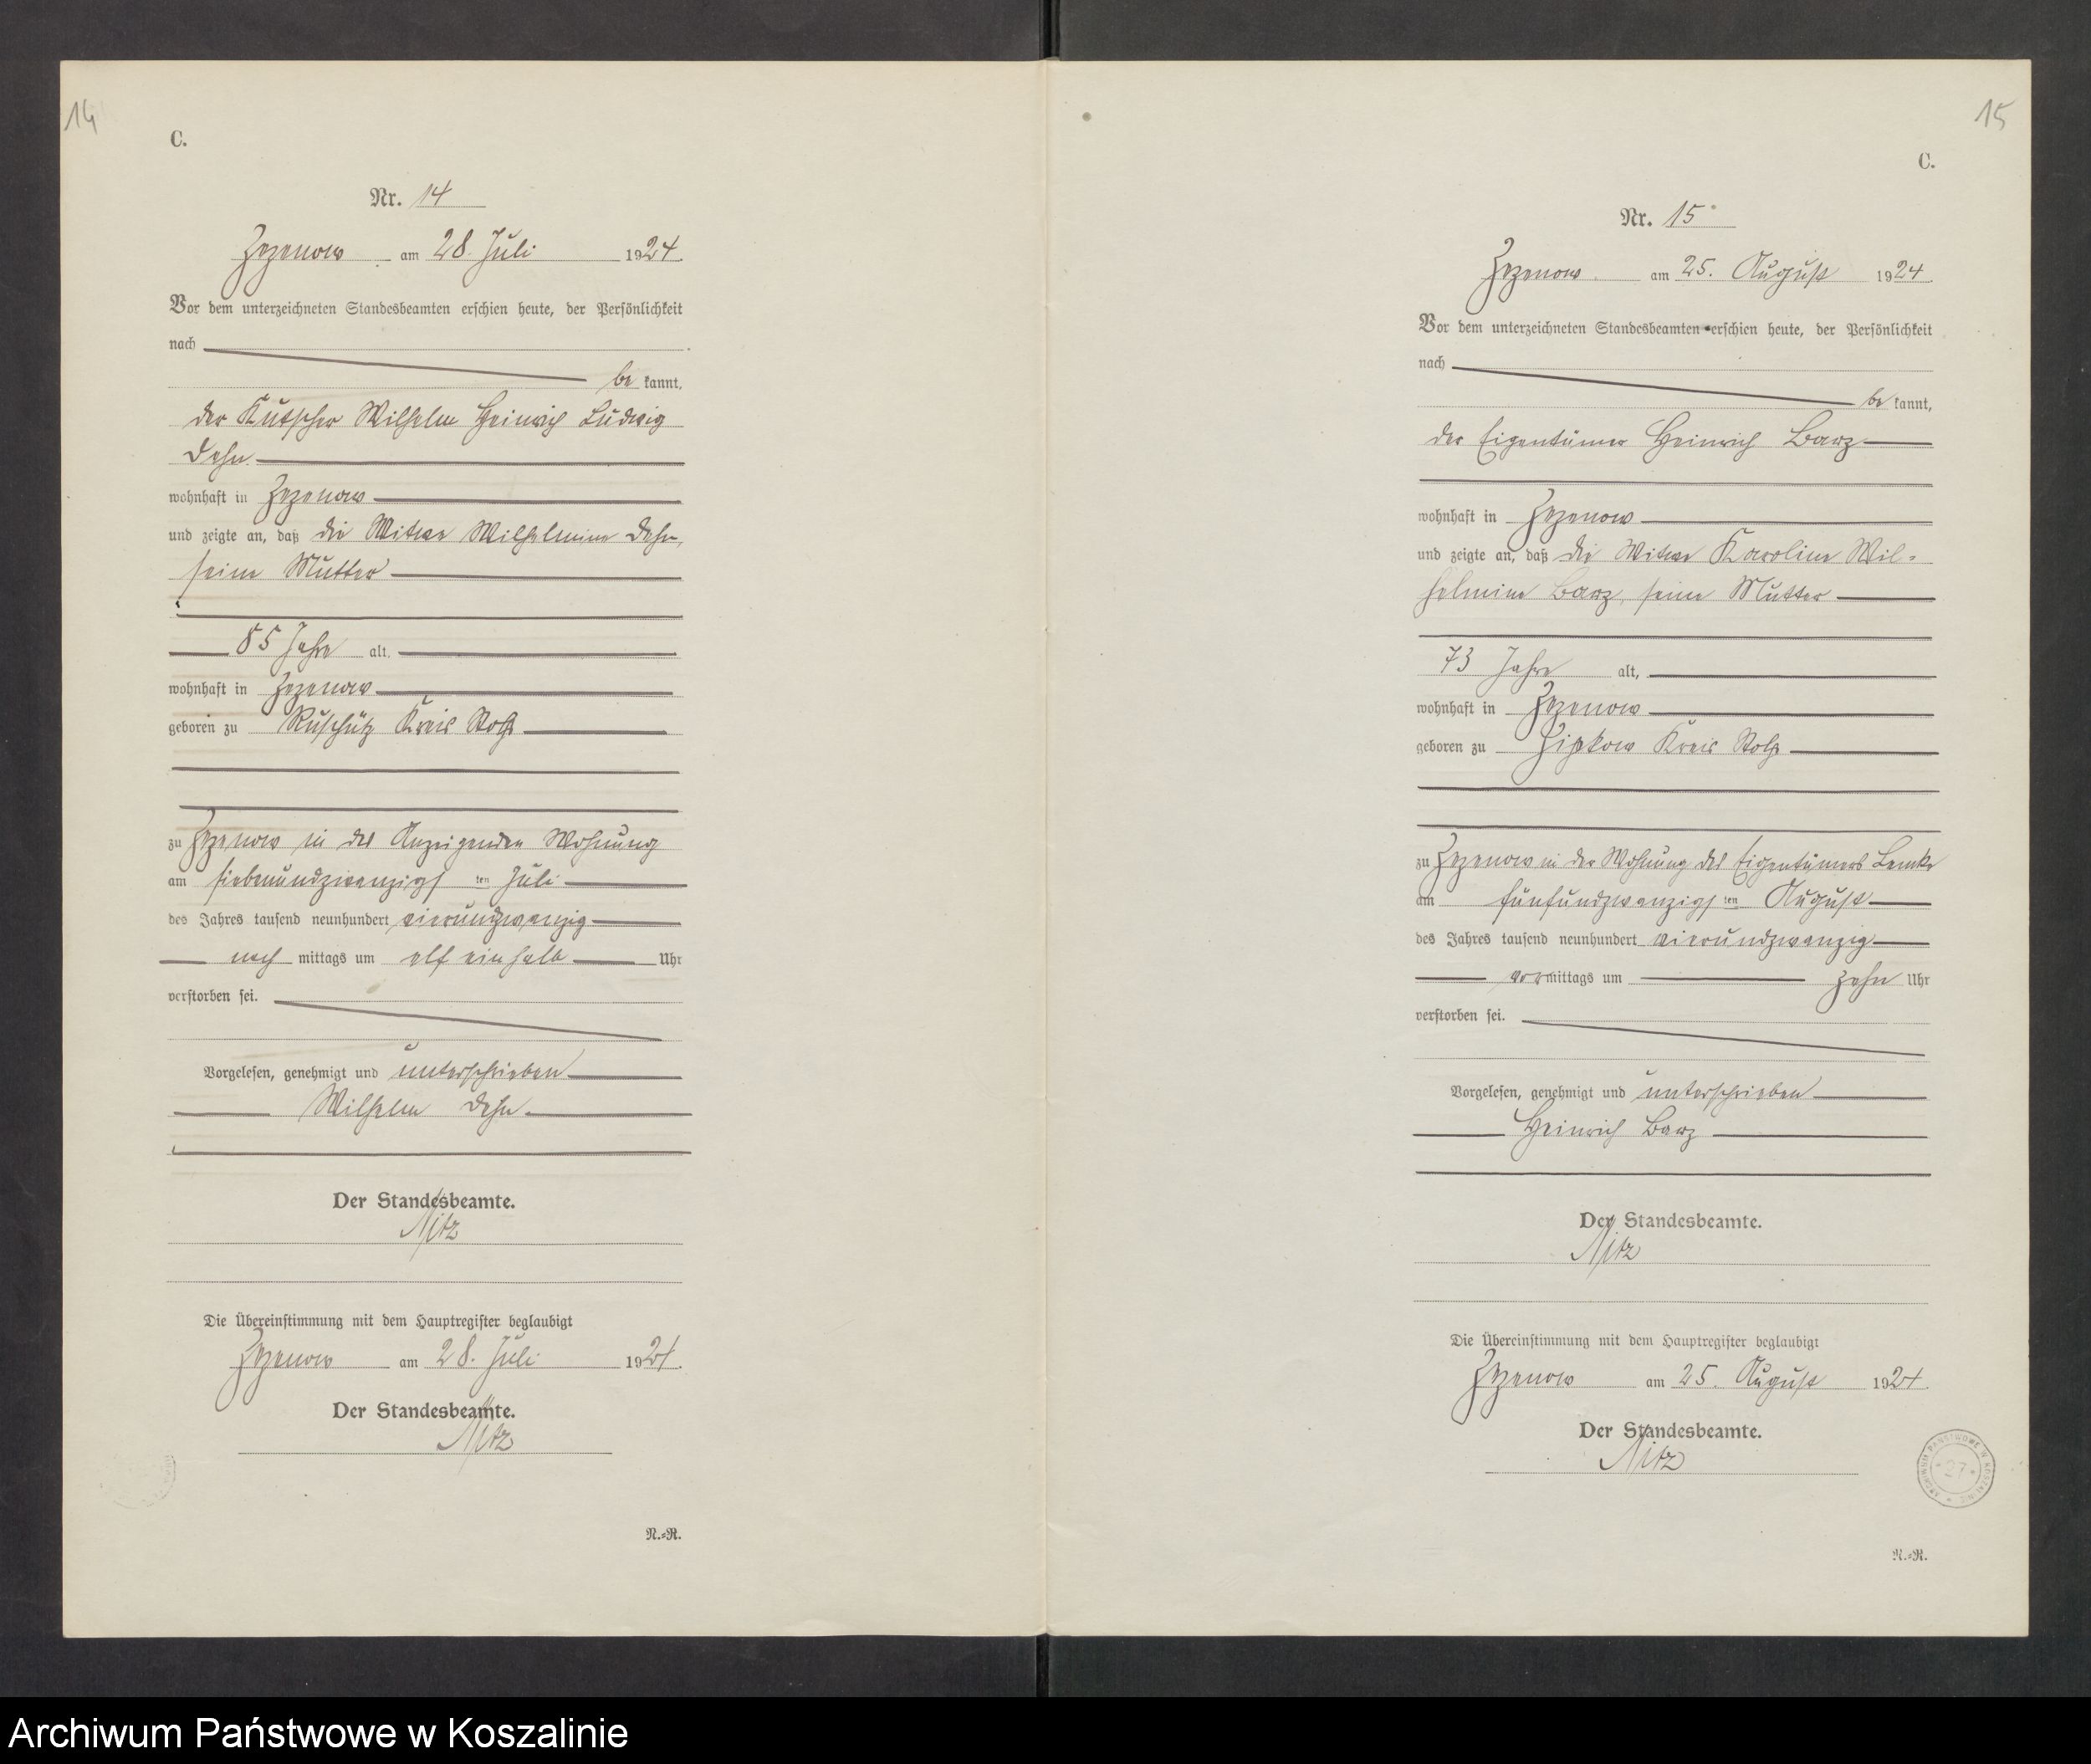 14
C.
Nr. 14
Zezenow am 28. Juli 1924.
Vor dem unterzeichneten Standesbeamten erschien heute, der Persönlichkeit
nach
be kannt,
der Kutscher Wilhelm Heinrich Ludwig
Dehn
wohnhaft in Zezenow
und zeigte an, daß die Witwe Wilhelmine Dehn,
seine Mutter
85 Jahre alt,
wohnhaft in Zezenow
geboren zu Ruschütz Kreis Stolp
zu Zezenow in des Anzeigenden Wohnung
am siebenundzwanzigsten Juli
des Jahres tausend neunhundert vierundzwanzig
nach mittags um elf einhalb Uhr
verstorben sei.
Vorgelesen, genehmigt und unterschrieben
Wilhelm Dehn.
Der Standesbeamte.
Nitz
Die Übereinstimmung mit dem Hauptregister beglaubigt
Zezenow am 28. Juli 1924.
Der Standesbeamte.
Nitz
N.=R.
15
C.
Nr. 15
Zezenow am 25. August 1924.
Vor dem unterzeichneten Standesbeamten erschien heute, der Persönlichkeit
nach
be kannt,
der Eigentümer Heinrich Barz
wohnhaft in Zezenow
und zeigte an, daß die Witwe Karoline Wil=
helmine Barz, seine Mutter
73 Jahre alt,
wohnhaft in Zezenow
geboren zu Zipkow Kreis Stolp
zu Zezenow in der Wohnung des Eigentümers Lemke
am fünfundzwanzigsten August
des Jahres tausend neunhundert vierundzwanzig
vormittags um zehn Uhr
verstorben sei.
Vorgelesen, genehmigt und unterschrieben
Heinrich Barz
Der Standesbeamte.
Nitz
Die Übereinstimmung mit dem Hauptregister beglaubigt
Zezenow am 25. August 1924.
Der Standesbeamte.
Nitz
ARCHIWUM PAŃSTWOWE W KOSZALINIE
27
N.=R.
Archiwum Państwowe w Koszalinie